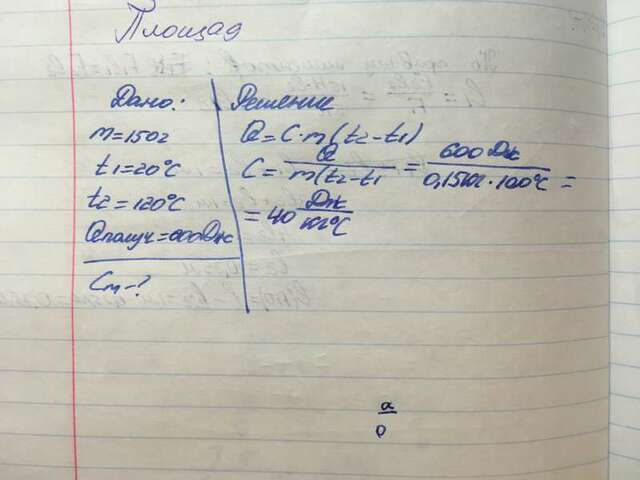 Площад
Дано:
m=150г
t1=20°C
t2=120°C
Qполуч=600Дж
Cm-?
Решение
Q=C·m(t2-t1)
C=Q/m(t2-t1=600Дж/0,15кг·100°C=
=40Дж/кг°C
a
0